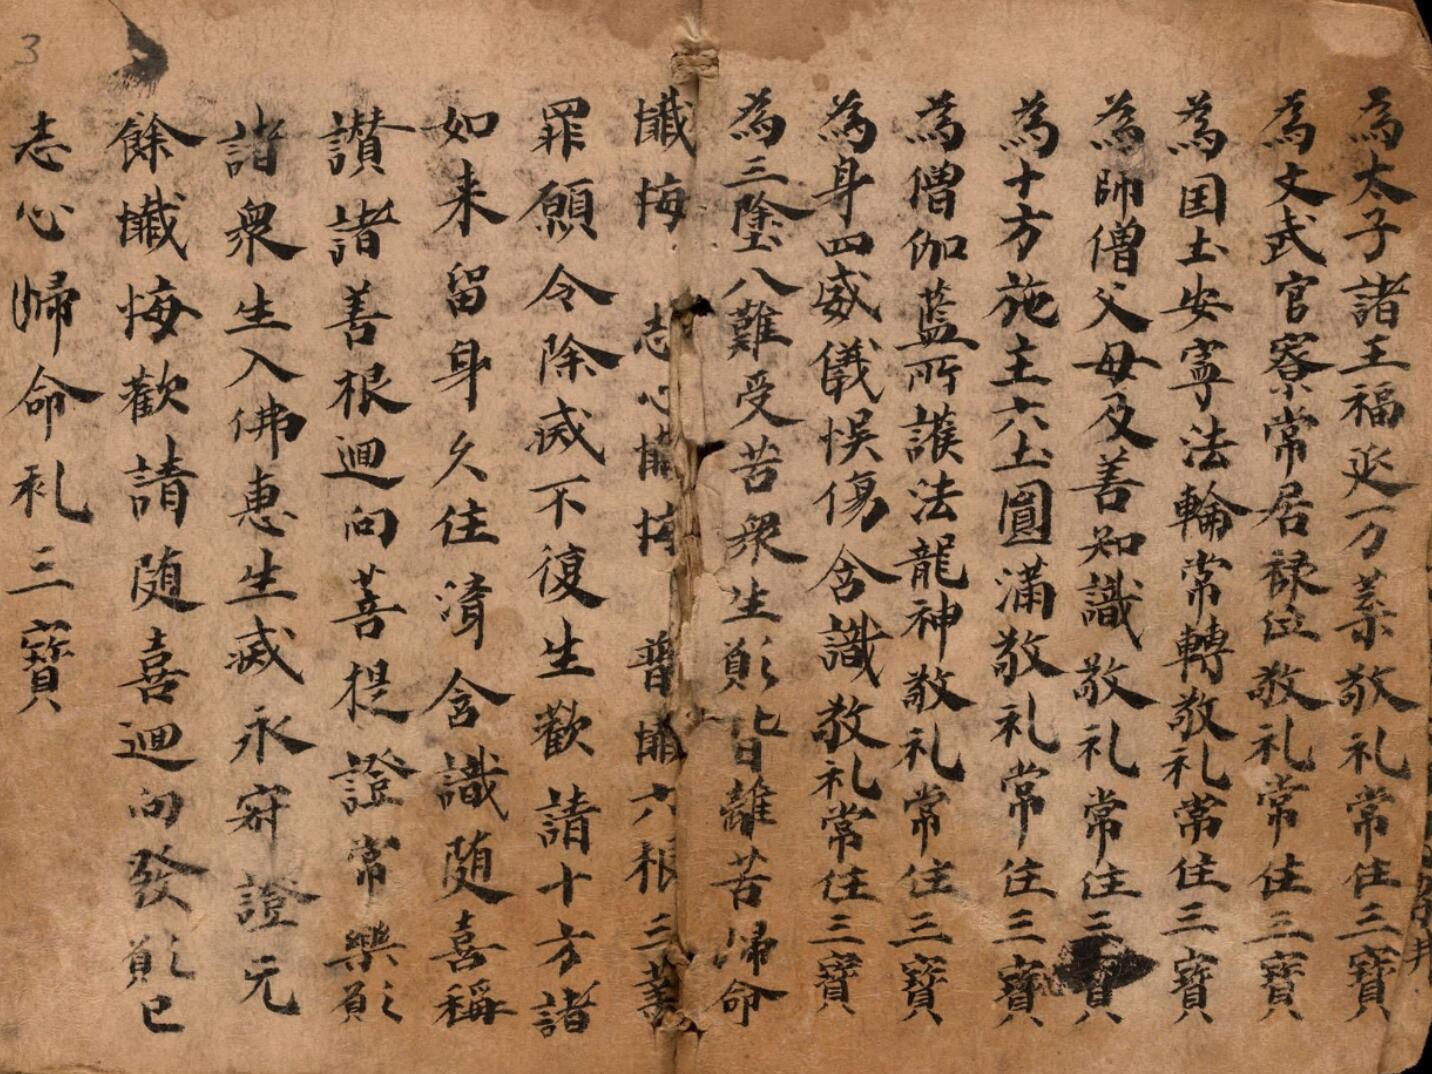 為太子諸王福延万葉敬礼常住三寶
為文武官寮常居禄位敬礼常住三寶
為国土安寧法輪常轉敬礼常住三寶
為師僧父母及善知識敬礼常住三寶
為十方施主六土圓滿敬礼常住三寶
為僧伽藍所護法龍神敬礼常住三寶
為身四威儀悮傷含識敬礼常住三寶
為三塗八難受苦衆生願皆離苦歸命
懺悔 志心懺悔 普懺六根三業
罪願令除滅不復生歡請十方諸
如来留身久住濟含識随喜稱
讃諸善根迴向菩提證常樂願
諸衆生入佛惠生滅永寂證无
餘懺悔歡請随喜迴向發願已
志心歸命礼三寶
3